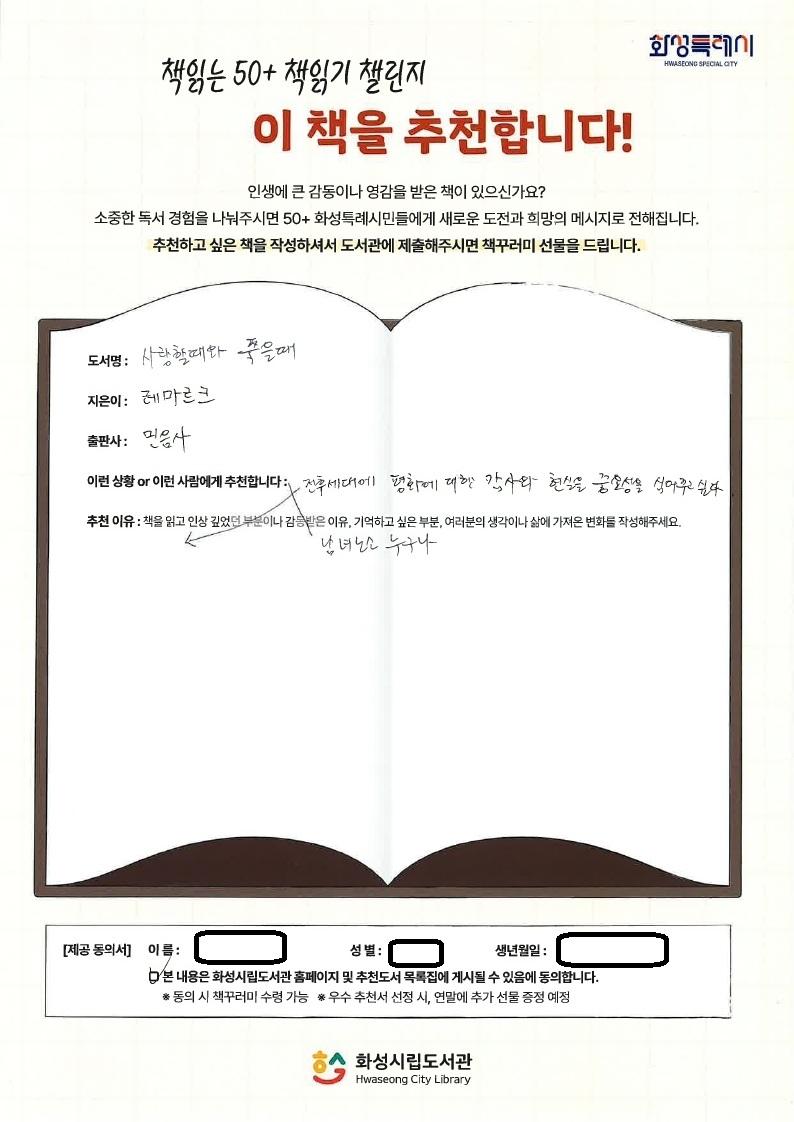 화성특례시
HWASEONG SPECIAL CITY
책읽는 50+ 책읽기 챌린지
이 책을 추천합니다!
인생에 큰 감동이나 영감을 받은 책이 있으신가요?
소중한 독서 경험을 나눠주시면 50+ 화성특례시민들에게 새로운 도전과 희망의 메시지로 전해집니다.
추천하고 싶은 책을 작성하셔서 도서관에 제출해주시면 책꾸러미 선물을 드립니다.
도서명 : 사랑할때와 죽을때
지은이 : 레마르크
출판사 : 민음사
이런 상황 or 이런 사람에게 추천합니다 : 전후세대에 평화에 대한 감사와 현실을 중요성을 심어주고 싶다
추천 이유 : 책을 읽고 인상 깊었던 부분이나 감동받은 이유, 기억하고 싶은 부분, 여러분의 생각이나 삶에 가져온 변화를 작성해주세요.
남녀노소 누구나
[제공 동의서] 이 름 : 성 별 : 생년월일 :
본 내용은 화성시립도서관 홈페이지 및 추천도서 목록집에 게시될 수 있음에 동의합니다.
※ 동의 시 책꾸러미 수령 가능 ※ 우수 추천서 선정 시, 연말에 추가 선물 증정 예정
화성시립도서관
Hwaseong City Library